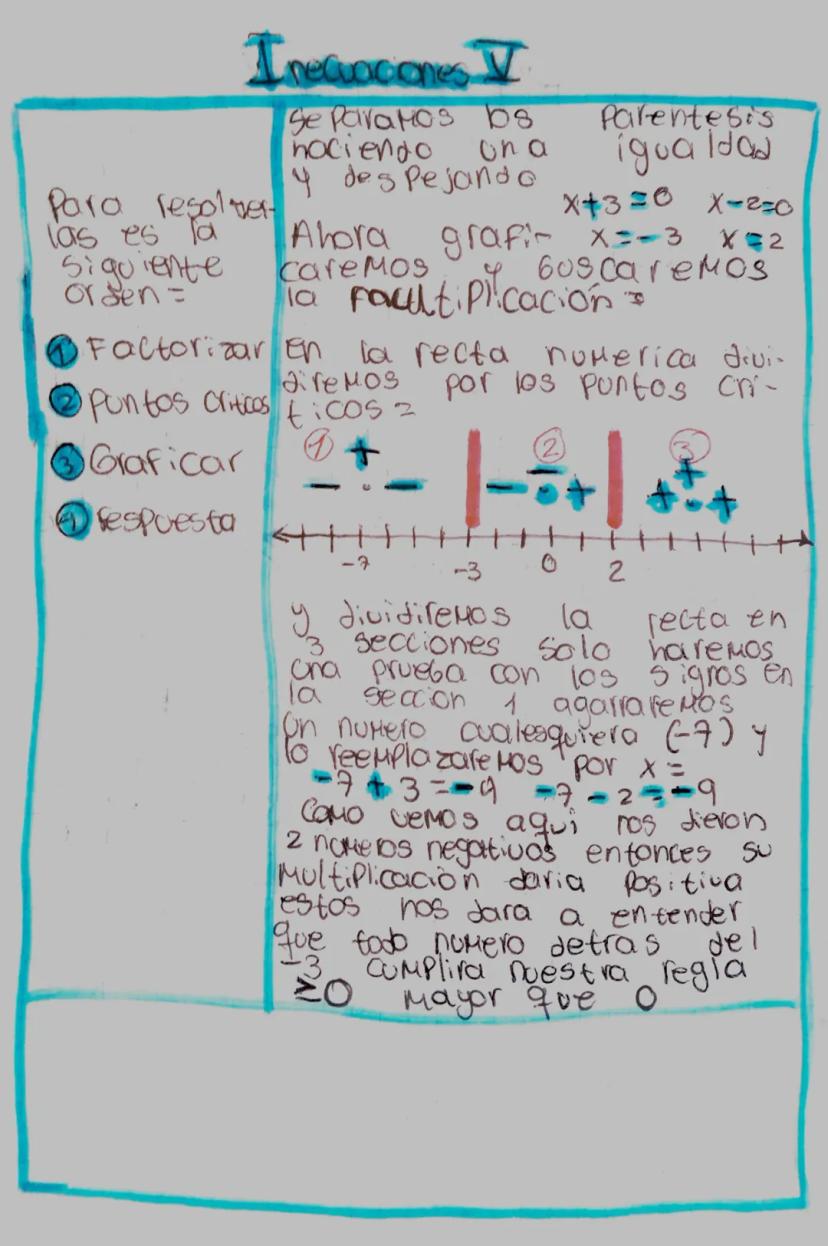 Inecuaciones V
Para resolver-
las es la
siguiente
orden =
1 Factorizar
2 puntos criticos
3 Graficar
4 respuesta
separamos los parentesis
haciendo una igualdad
y despejando
x+3=0 x-2=0
Ahora grafi- x=-3 x=2
caremos y buscaremos
la multiplicación =
En la recta numerica divi-
diremos por los puntos cri-
ticos =
1 + 2 - 3 +
- . - - . + + . +
-7 -3 0 2
y dividiremos la recta en
3 secciones solo haremos
una prueba con los signos en
la seccion 1 agarraremos
un numero cualesquiera (-7) y
lo reemplazaremos por x =
-7 + 3 = -4 -7 - 2 = -9
como vemos aqui nos dieron
2 numeros negativos entonces su
multiplicación daria positiva
estos nos dara a entender
que todo numero detras del
-3 cumplira nuestra regla
≥0 mayor que 0